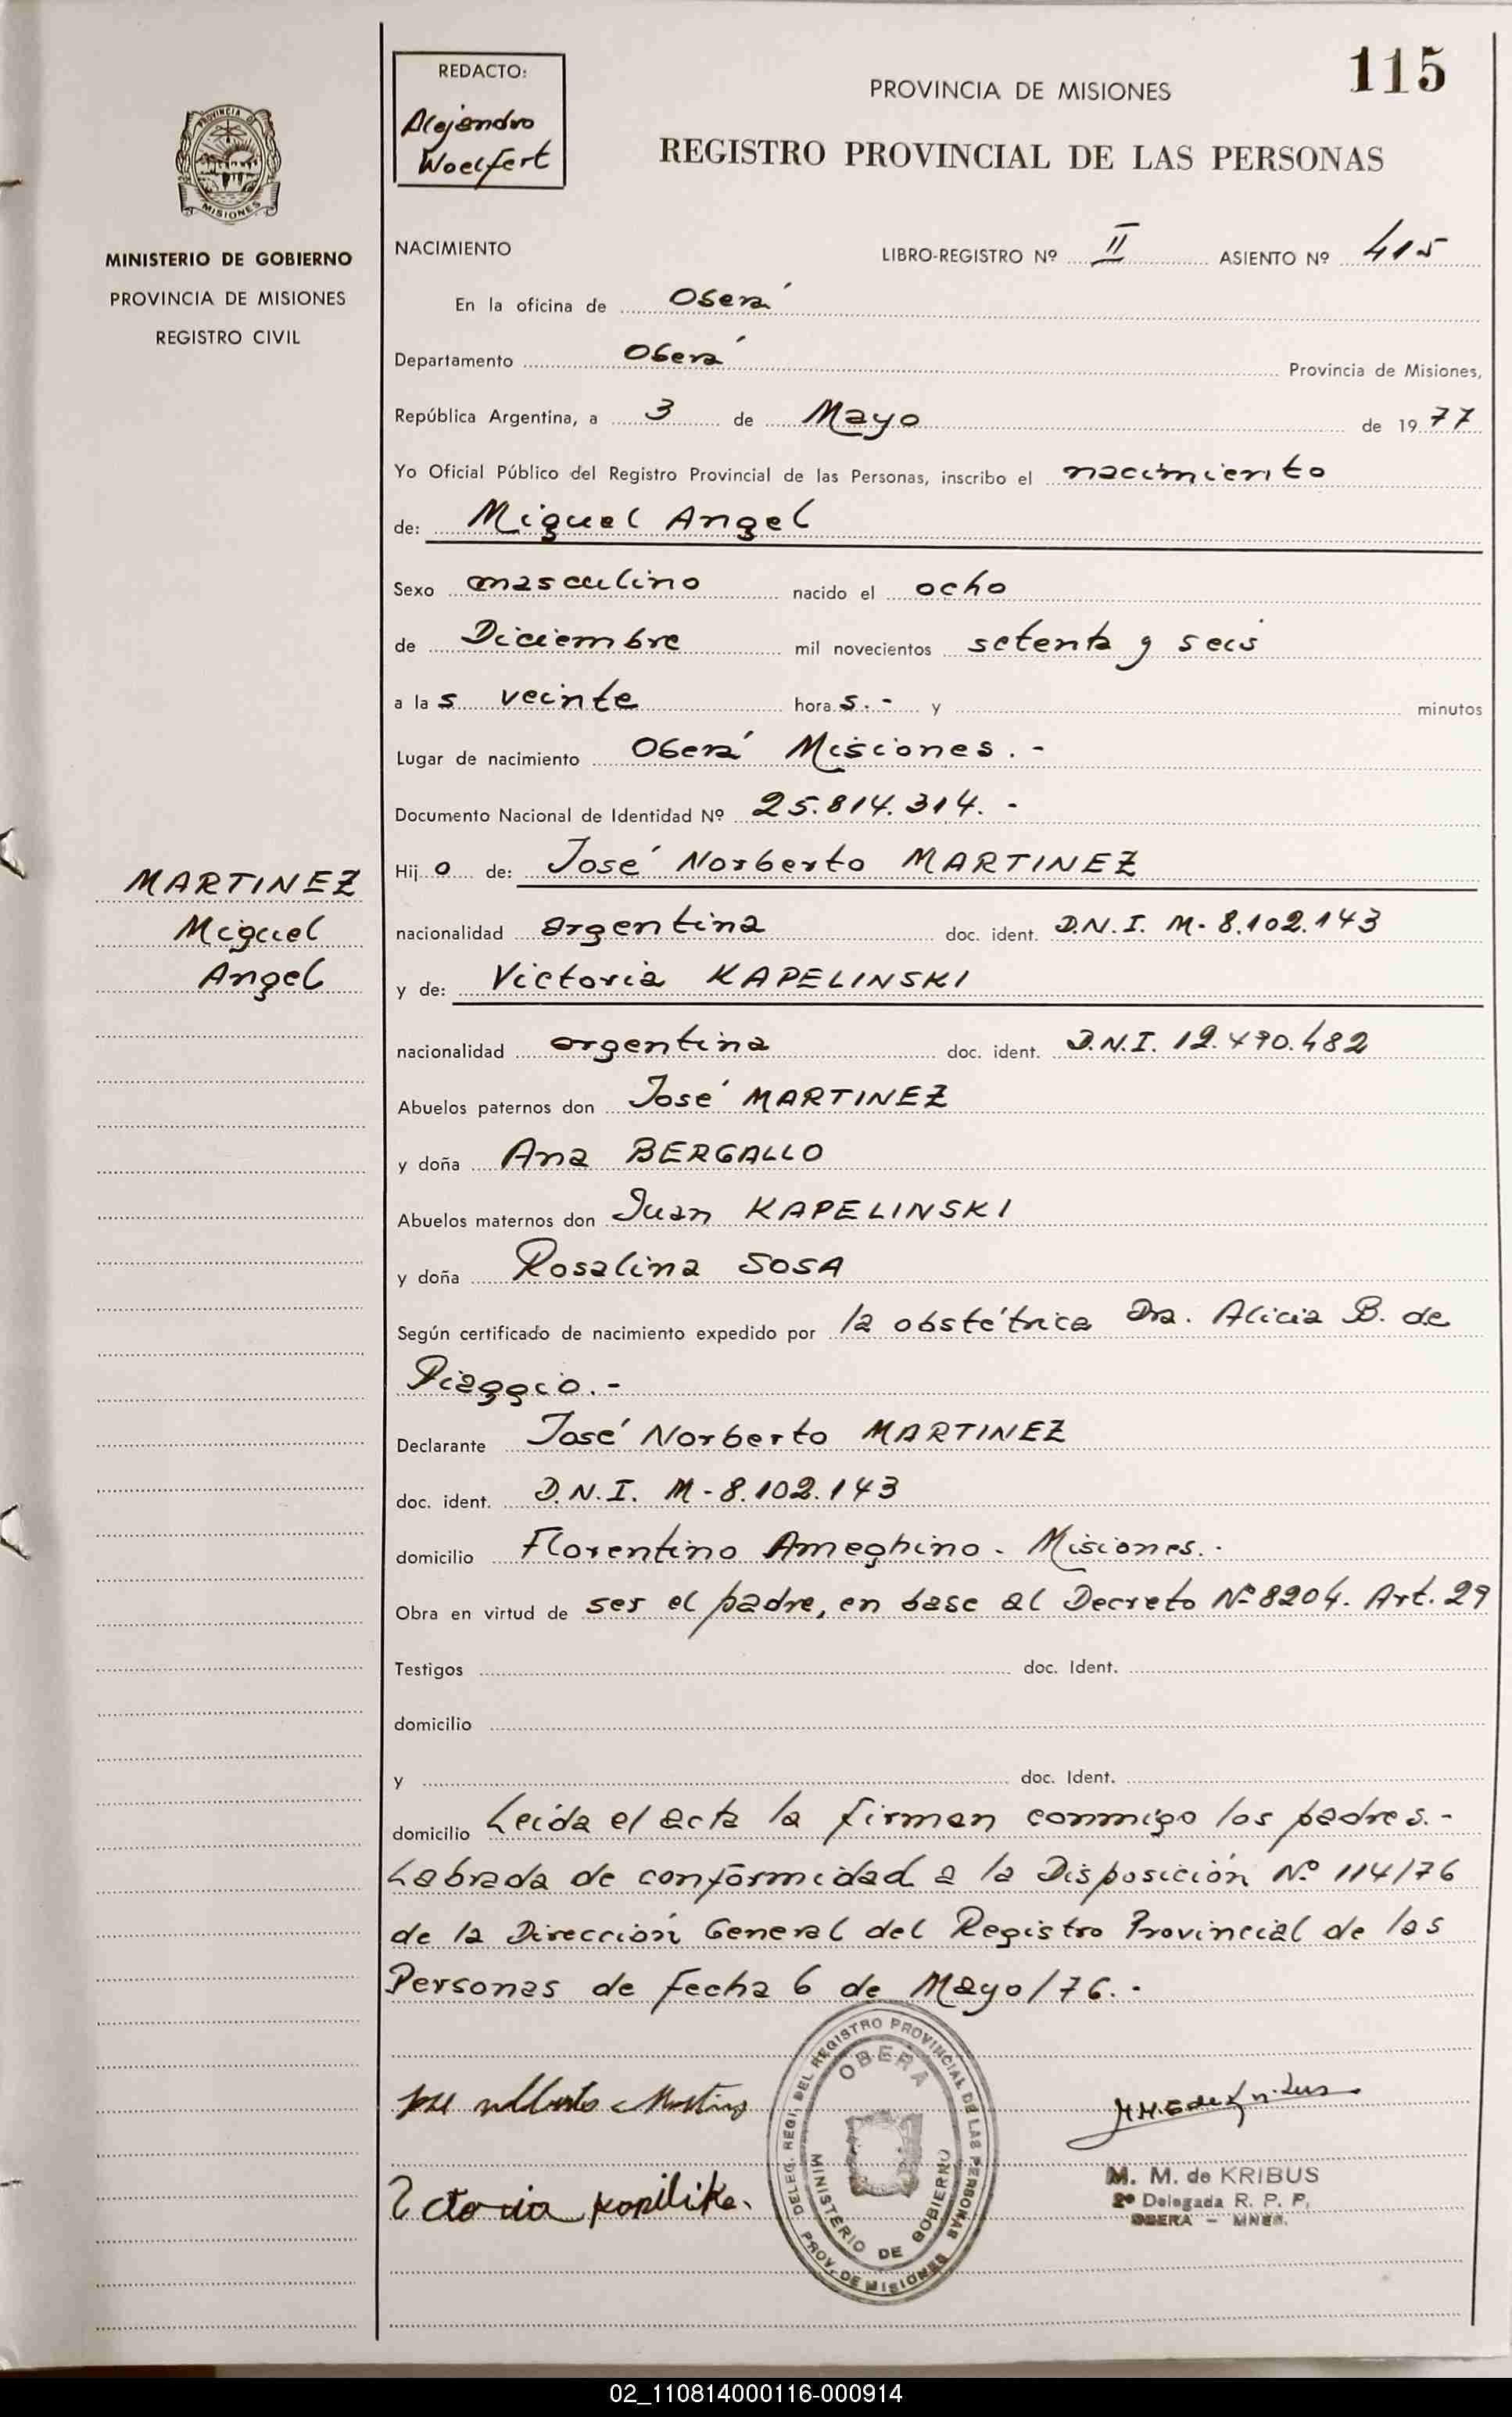 REDACTO:
Alejandro
Woelfert
PROVINCIA DE MISIONES
115
REGISTRO PROVINCIAL DE LAS PERSONAS
PROVINCIA DE
MISIONES
MINISTERIO DE GOBIERNO
PROVINCIA DE MISIONES
REGISTRO CIVIL
NACIMIENTO LIBRO-REGISTRO Nº II ASIENTO Nº 415
En la oficina de Oberá
Departamento Oberá Provincia de Misiones,
República Argentina, a 3 de Mayo de 1977
Yo Oficial Público del Registro Provincial de las Personas, inscribo el nacimiento
de: Miguel Angel
Sexo masculino nacido el ocho
de Diciembre mil novecientos setenta y seis
a las veinte horas.- y minutos
Lugar de nacimiento Oberá Misiones.-
Documento Nacional de Identidad Nº 25.814.314.-
MARTINEZ
Miguel
Angel
Hijo de: José Norberto MARTINEZ
nacionalidad argentina doc. ident. D.N.I. M-8.102.143
y de: Victoria KAPELINSKI
nacionalidad argentina doc. ident. D.N.I.
Abuelos paternos don José MARTINEZ
y doña Ana BERGALLO
Abuelos maternos don Juan KAPELINSKI
y doña Rosalina SOSA
Según certificado de nacimiento expedido por la obstétrica Dra. Alicia B. de
Piaggio.-
Declarante José Norberto MARTINEZ
doc. ident. D.N.I. M-8.102.143
domicilio Florentino Ameghino. Misiones.-
Obra en virtud de ser el padre, en base al Decreto Nº 8204. Art. 29
Testigos doc. Ident.
domicilio
y doc. Ident.
domicilio Leída el acta la firman conmigo los padres.-
Labrada de conformidad a la Disposición Nº 114/76
de la Dirección General del Registro Provincial de las
Personas de fecha 6 de Mayo/76.-
DELEG. REGI. DEL REGISTRO PROVINCIAL DE LAS PERSONAS
OBERA
MINISTERIO DE GOBIERNO
PROV. DE MISIONES
M. M. de KRIBUS
2º Delegada R. P. P.
OBERA - MNES.
02_110814000116-000914